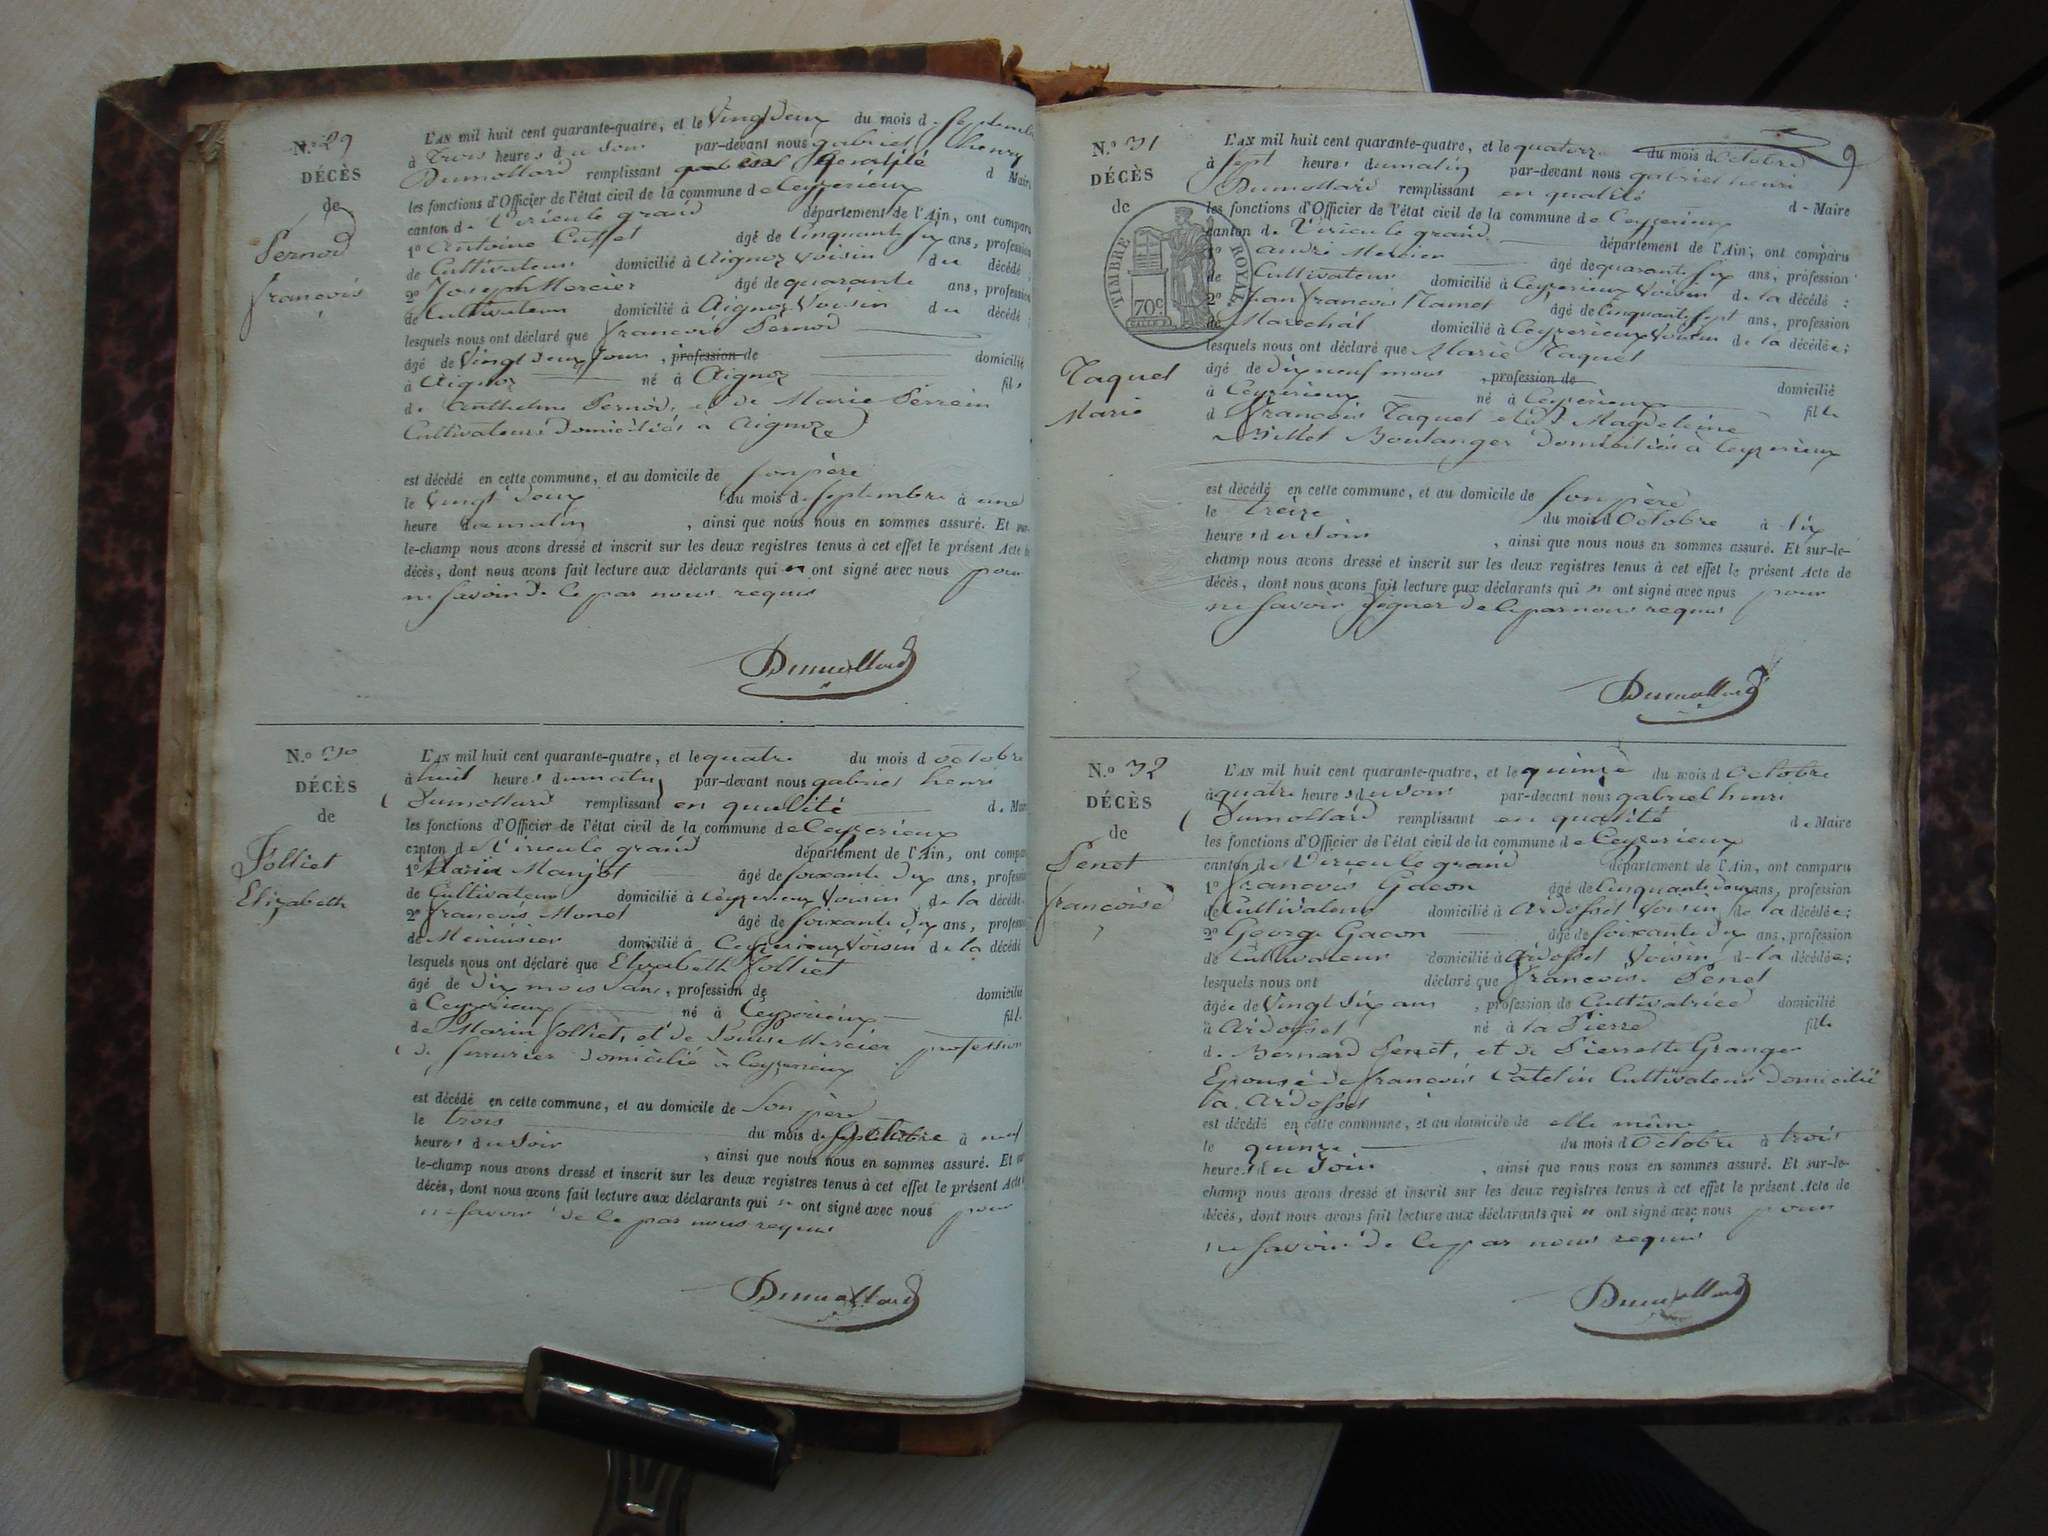 N.º 29
DÉCÈS
de
Pernod
françois
L'AN mil huit cent quarante-quatre, et le Vingt deux du mois d. septembre
à trois heures du soir par-devant nous gabriel henry
Dumollard remplissant en qualité d Maire
les fonctions d'Officier de l'état civil de la commune de Ceyzerieux
canton de Virieu le grand département de l'Ain, ont comparu
1º Antoine Cusset âgé de Cinquante six ans, profession
de Cultivateur domicilié à Aignoz Voisin du décédé;
2º Joseph Mercier âgé de quarante ans, profession
de Cultivateur domicilié à Aignoz Voisin du décédé;
lesquels nous ont déclaré que françois Pernod
âgé de Vingt deux jours, profession de domicilié
à Aignoz né à Aignoz fils
d. Anthelme Pernod, et de Marie Perrein
Cultivateurs domiciliés à Aignoz
est décédé en cette commune, et au domicile de son père
le Vingt deux du mois de septembre à une
heure du matin, ainsi que nous nous en sommes assuré. Et sur-
le-champ nous avons dressé et inscrit sur les deux registres tenus à cet effet le présent Acte de
décès, dont nous avons fait lecture aux déclarants qui n ont signé avec nous pour
ne savoir de ce par nous requis
Dumollard
N.º 30
DÉCÈS
de
Jolliet
Elizabeth
L'AN mil huit cent quarante-quatre, et le quatre du mois d octobre
à huit heures du matin par-devant nous gabriel henri
Dumollard remplissant en qualité d. Maire
les fonctions d'Officier de l'état civil de la commune de Ceyzerieux
canton de Virieu le grand département de l'Ain, ont comparu
1º Marin Manjot âgé de soixante dix ans, profession
de Cultivateur domicilié à Ceyzerieux Voisin de la décédé
2º françois Monet âgé de soixante dix ans, profession
de Menuisier domicilié à Ceyzerieux Voisin de la décédé
lesquels nous ont déclaré que Elizabeth Jolliet
âgé de dix mois, profession de domicilié
à Ceyzerieux né à Ceyzerieux fille
de Marin Jolliet, et de Louise Mercier profession
de serrurier domicilié à Ceyzerieux
est décédé en cette commune, et au domicile de son père
le trois du mois de octobre à neuf
heures du soir, ainsi que nous nous en sommes assuré. Et sur
le-champ nous avons dressé et inscrit sur les deux registres tenus à cet effet le présent Acte
décès, dont nous avons fait lecture aux déclarants qui n ont signé avec nous pour
ne savoir de ce par nous requis
Dumollard
9
N.º 31
DÉCÈS
de
TIMBRE ROYAL
70c
Taquet
Marie
L'AN mil huit cent quarante-quatre, et le quatorze du mois d octobre
à sept heures du matin par-devant nous gabriel henri
Dumollard remplissant en qualité d. Maire
les fonctions d'Officier de l'état civil de la commune de Ceyzerieux
canton de Virieu le grand département de l'Ain, ont comparu
1º andré Mercier âgé de quarante six ans, profession
de Cultivateur domicilié à Ceyzerieux Voisin de la décédé;
2º Jean françois Mamet âgé de Cinquante sept ans, profession
de Marechal domicilié à Ceyzerieux Voisin de la décédée;
lesquels nous ont déclaré que Marie Taquet
âgé de dix neuf mois, profession de domicilié
à Ceyzerieux né à Ceyzerieux fille
d françois Taquet et de Magdeleine
Billet Boulanger domiciliés à Ceyzerieux
est décédé en cette commune, et au domicile de son père
le treize du mois d Octobre à six
heures du soir, ainsi que nous nous en sommes assuré. Et sur-le-
champ nous avons dressé et inscrit sur les deux registres tenus à cet effet le présent Acte de
décès, dont nous avons fait lecture aux déclarants qui n ont signé avec nous pour
ne savoir signer de ce par nous requis
Dumollard
N.º 32
DÉCÈS
de
Penet
françoise
L'AN mil huit cent quarante-quatre, et le quinze du mois d Octobre
à quatre heures du soir par-devant nous gabriel henri
Dumollard remplissant en qualité d. Maire
les fonctions d'Officier de l'état civil de la commune de Ceyzerieux
canton de Virieu le grand département de l'Ain, ont comparu
1º françois Gacon âgé de Cinquante deux ans, profession
de Cultivateur domicilié à Ardosset Voisin de la décédée;
2º George Gacon âgé de soixante dix ans, profession
de Cultivateur domicilié à Ardosset Voisin de la décédée;
lesquels nous ont déclaré que françoise Penet
âgée de Vingt six ans, profession de Cultivatrice domicilié
à Ardosset né à la Pierre fille
d. Bernard Penet, et de Pierrette Granger
Epouse de françois Catelin Cultivateur domicilié
à Ardosset
est décédé en cette commune, et au domicile de elle même
le quinze du mois d Octobre à trois
heures du soir, ainsi que nous nous en sommes assuré. Et sur-le-
champ nous avons dressé et inscrit sur les deux registres tenus à cet effet le présent Acte de
décès, dont nous avons fait lecture aux déclarants qui n ont signé avec nous pour
ne savoir de ce par nous requis
Dumollard